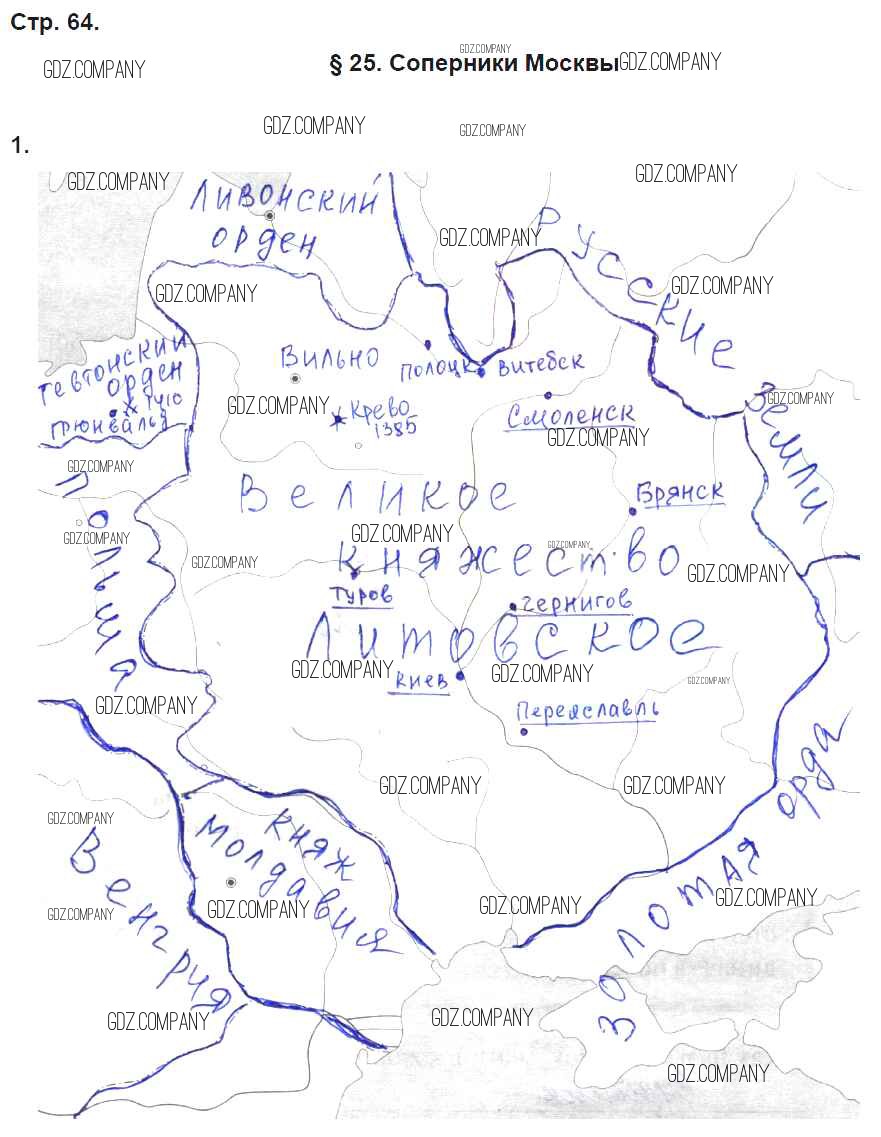 Стр. 64.
GDZ.COMPANY
§ 25. Соперники Москвы
GDZ.COMPANY
GDZ.COMPANY
GDZ.COMPANY
GDZ.COMPANY
1.
GDZ.COMPANY
GDZ.COMPANY
Ливонский
орден
Русские
земли
GDZ.COMPANY
GDZ.COMPANY
GDZ.COMPANY
Тевтонский
орден
1410
Грюнвальд
Вильно
Полоцк
Витебск
GDZ.COMPANY
Крево
1385
Смоленск
GDZ.COMPANY
GDZ.COMPANY
GDZ.COMPANY
Польша
Великое
Брянск
GDZ.COMPANY
GDZ.COMPANY
GDZ.COMPANY
княжество
GDZ.COMPANY
GDZ.COMPANY
Туров
Чернигов
Литовское
GDZ.COMPANY
GDZ.COMPANY
GDZ.COMPANY
Киев
GDZ.COMPANY
Переяславль
GDZ.COMPANY
GDZ.COMPANY
GDZ.COMPANY
Княж
Молдавия
Венгрия
Золотая орда
GDZ.COMPANY
GDZ.COMPANY
GDZ.COMPANY
GDZ.COMPANY
GDZ.COMPANY
GDZ.COMPANY
GDZ.COMPANY